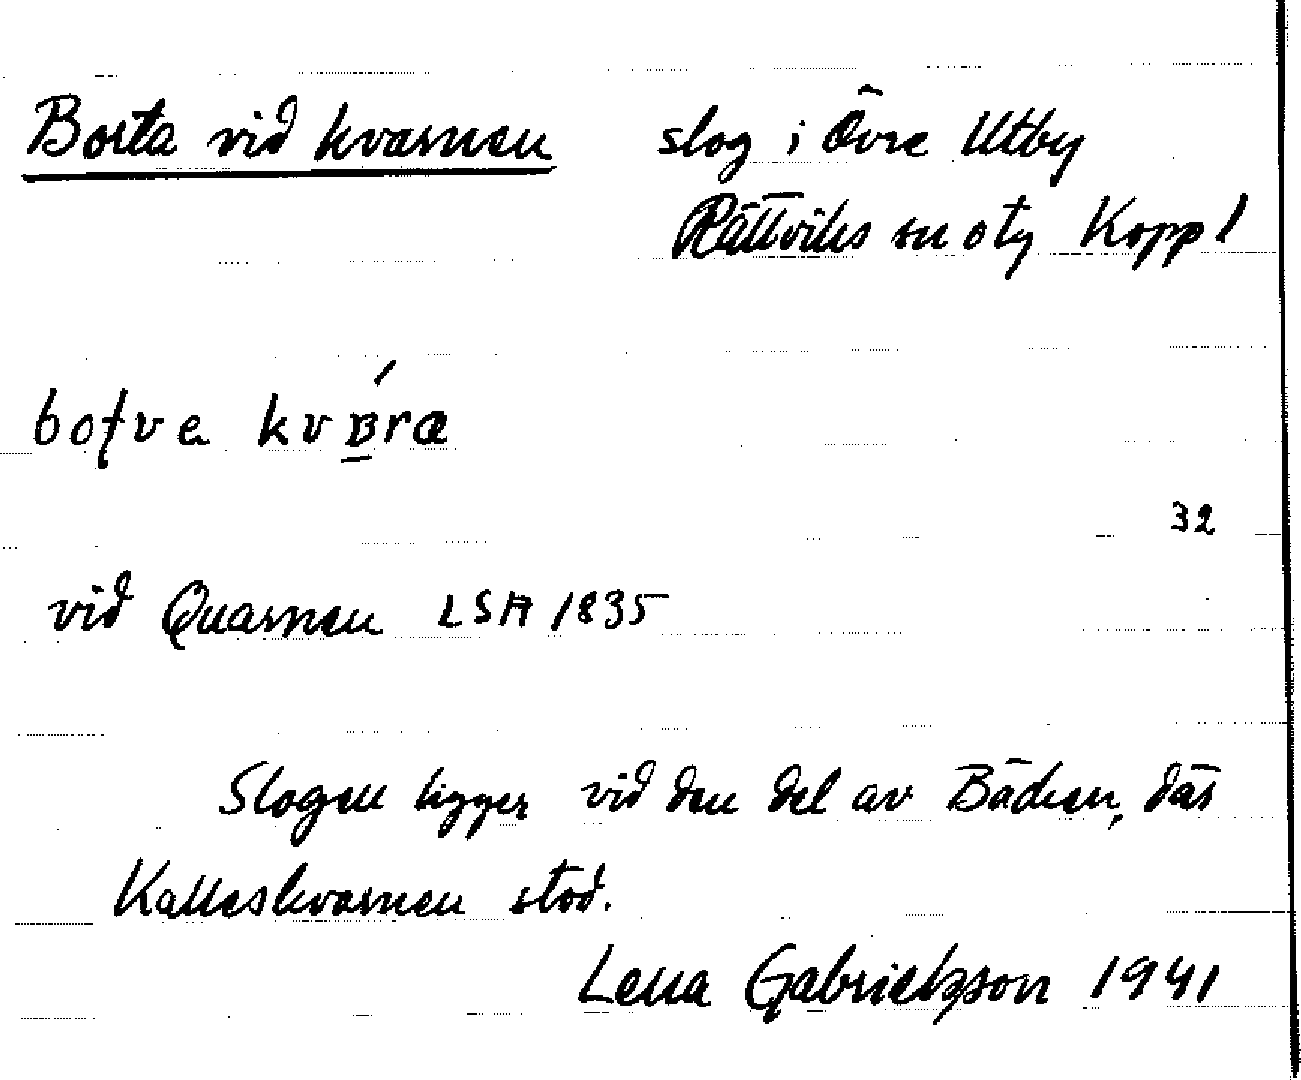 Borta vid kvarnen slog i Övre Utby
Rättviks sn o tg Kopp l
vid Quarnen LSA 1835
32
Slogen ligger vid den del av Bäcken, där
Kalleskvarnen stod.
Lena Gabrielsson 1941